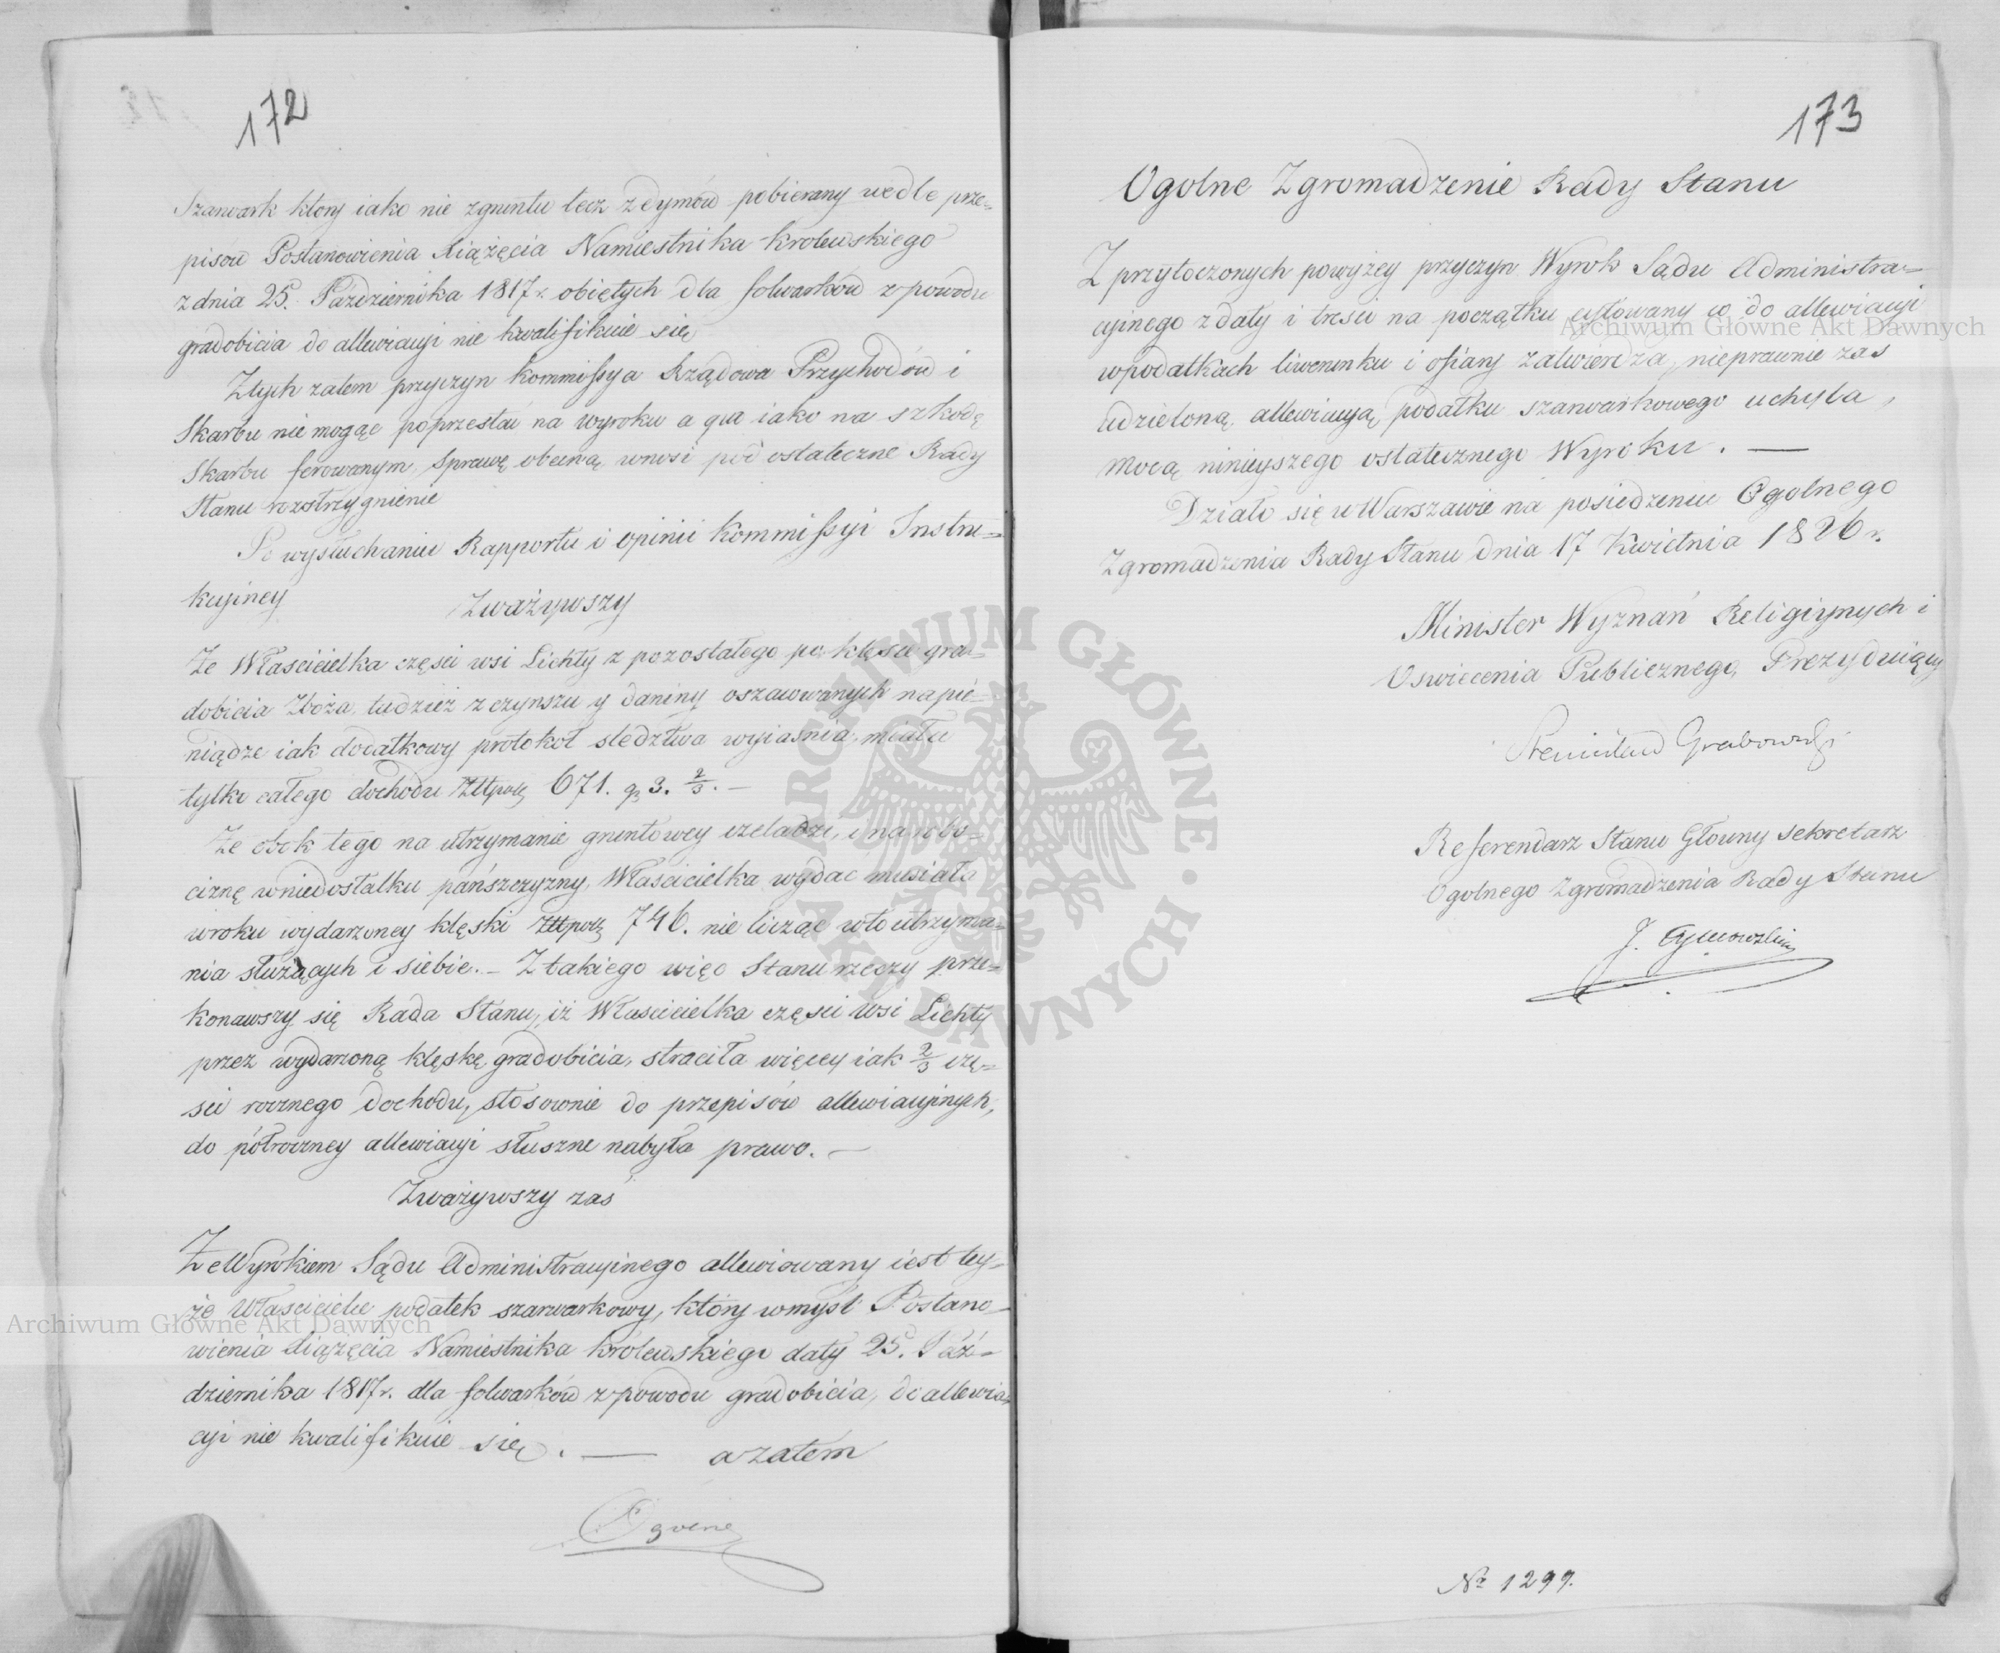 172
Szarwark ktory iako nie zgruntu lecz z dymów pobierany wedle prze=
pisów Postanowienia Xiążęcia Namiestnika Krolewskiego
z dnia 25. Października 1817 r. obiętych dla folwarków z powodu
gradobicia do allewiacyi nie kwalifikuie się
Ztych zatem przyczyn Kommissya Rządowa Przychodów i
Skarbu nie mogąc poprzestać na wyroku a quo iako na szkodę
Skarbu ferowanym, sprawę obecną wnosi pod ostateczne Rady
Stanu rozstrzygnienie
Po wysłuchaniu Rapportu i opinii Kommissyi Instru=
kcyiney
Zważywszy
Że Właścicielka części wsi Lichty z pozostałego po klęsce gra=
dobicia Zboża tudzież z czynszu y daniny oszacowanych na pie=
niądze iak dodatkowy protokoł sledztwa wyiasnia, miała
tylko całego dochodu Złtpolz 671. gr 3. 2/3. —
Że obok tego na utrzymanie gruntowey czeladzi, i na robo=
ciznę w niedostatku pańszczyzny, Właścicielka wydać musiała
w roku wydarzoney klęski Złtpolz 746. nie licząc w to utrzyma=
nia służących i siebie. — Z takiego więc Stanu rzeczy prze=
konawszy się Rada Stanu, iż Właścicielka części wsi Lichty
przez wydarzoną klęskę gradobicia, straciła więcey iak 2/3 czę=
sci rocznego dochodu, stosownie do przepisów allewiacyinych,
do półroczney allewiacyi słuszne nabyła prawo. —
Zważywszy zaś
Że Wyrokiem Sądu Administracyinego allewiowany iest tey=
że Właścicielce podatek szarwarkowy, który w myśl Postano=
wienia Xiążęcia Namiestnika Królewskiego daty 25. Paź=
dziernika 1817 r. dla folwarków z powodu gradobicia, do allewia=
cyi nie kwalifikuie się. — a zatem
Ogolne
173
Ogolne Zgromadzenie Rady Stanu
Z przytoczonych powyżey przyczyn Wyrok Sądu Administra=
cyinego z daty i tresci na początku cytowany co do allewiacyi
w podatkach liwerunku i ofiary zatwierdza, nieprawnie zas
udzieloną allewiacyią podatku szarwarkowego uchyla,
mocą ninieyszego ostatecznego Wyroku. —
Działo się w Warszawie na posiedzeniu Ogolnego
Zgromadzenia Rady Stanu dnia 17 Kwietnia 1826 r.
Minister Wyznań Religiynych i
Oswiecenia Publicznego, Prezyduiący
Stanisław Grabowski
Referendarz Stanu Głowny Sekretarz
Ogolnego Zgromadzenia Rady Stanu
J.
No 1299.
Archiwum Główne Akt Dawnych
Archiwum Główne Akt Dawnych
ARCHIWUM GŁÓWNE AKT DAWNYCH